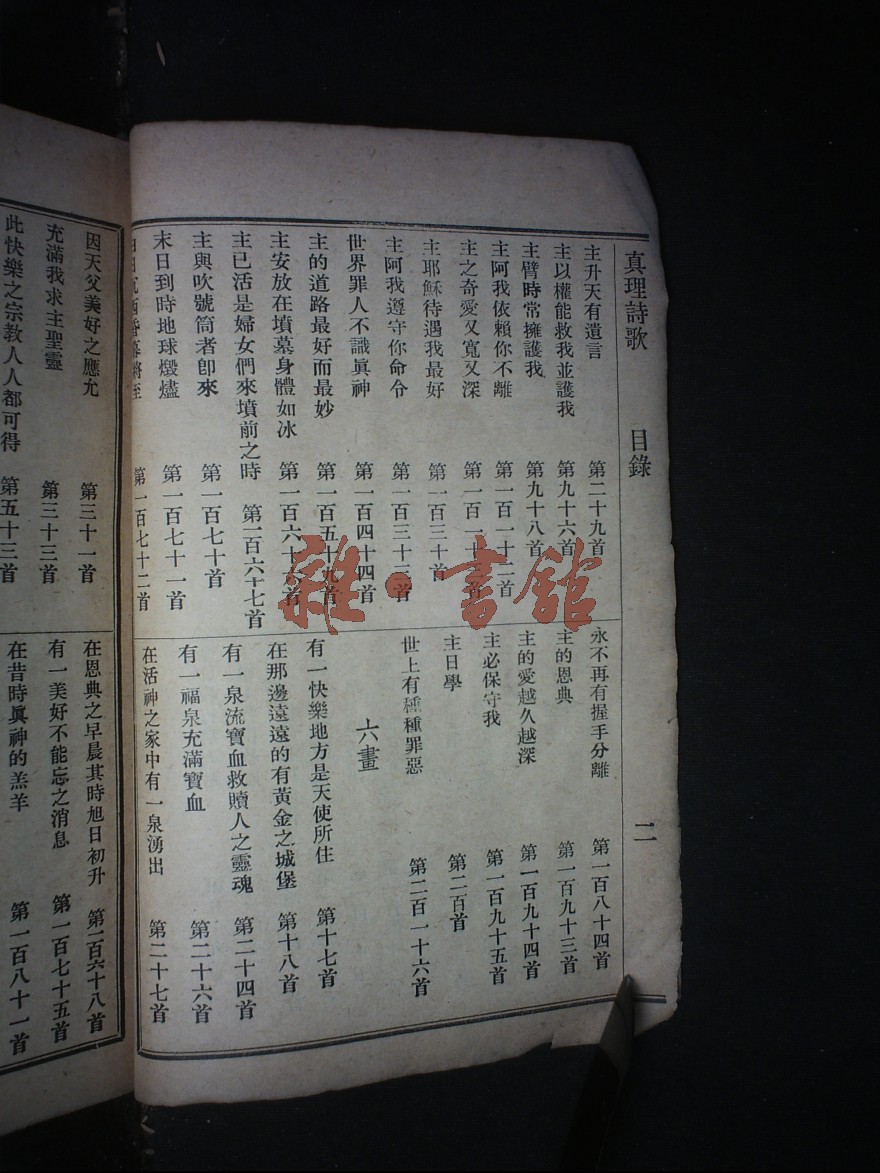 真理詩歌 目錄 二
主升天有遺言 第二十九首
主以權能救我並護我 第九十六首
主臂時常擁護我 第九十八首
主阿我依賴你不離 第一百一十二首
主之奇愛又寬又深 第一百一十首
主耶穌待遇我最好 第一百三十首
主阿我遵守你命令 第一百三十二首
世界罪人不識眞神 第一百四十四首
主的道路最好而最妙 第一百五十九首
主安放在墳墓身體如冰 第一百六十六首
主已活是婦女們來墳前之時 第一百六十七首
主與吹號筒者卽來 第一百七十首
末日到時地球燬燼 第一百七十一首
西 將至 第一百七十二首
永不再有握手分離 第一百八十四首
主的恩典 第一百九十三首
主的愛越久越深 第一百九十四首
主必保守我 第一百九十五首
主日學 第二百首
世上有種種罪惡 第二百一十六首
六畫
有一快樂地方是天使所住 第十七首
在那邊遠遠的有黃金之城堡 第十八首
有一泉流寶血救贖人之靈魂 第二十四首
有一福泉充滿寶血 第二十六首
在活神之家中有一泉湧出 第二十七首
因天父美好之應允 第三十一首
充滿我求主聖靈 第三十三首
此快樂之宗教人人都可得 第五十三首
在恩典之早晨其時旭日初升 第一百六十八首
有一美好不能忘之消息 第一百七十五首
在昔時眞神的羔羊 第一百八十一首
雜·書館